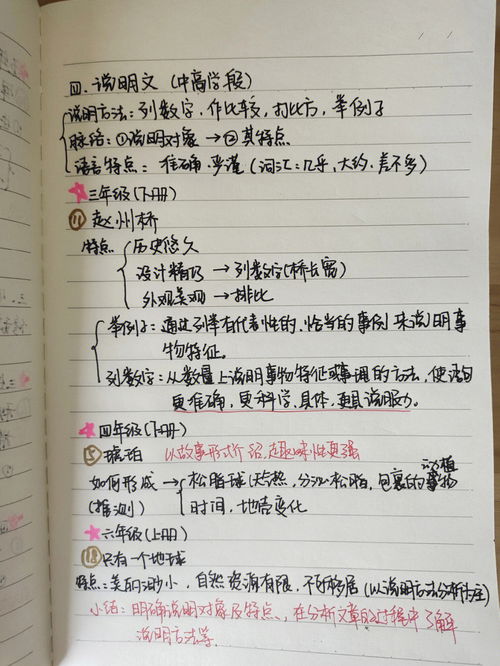 四、说明文（中高学段）
说明方法：列数字，作比较，打比方，举例子
脉络：①说明对象→②其特点
语言特点：准确、严谨（词汇：几乎，大约、差不多）
三年级（下册）
⑪赵州桥
特点 历史悠久
设计精巧→列数字（桥长宽）
外观美观→排比
举例子：通过列举有代表性的、恰当的事例来说明事
物特征。
列数字：从数量上说明事物特征或事理的方法，使语句
更准确，更科学、具体、更具说服力。
四年级（下册）
⑤琥珀 以故事形式介绍，趣味性更强
如何形成→松脂球（天热，分泌松脂，包裹的事物
（推测） 时间，地壳变化
六年级（上册）
⑱只有一个地球
特点：美丽渺小，自然资源有限，不可移居（以说明方法分析为主）
小结：明确说明对象及特点，在分析文章的过程中了解
说明方法等.